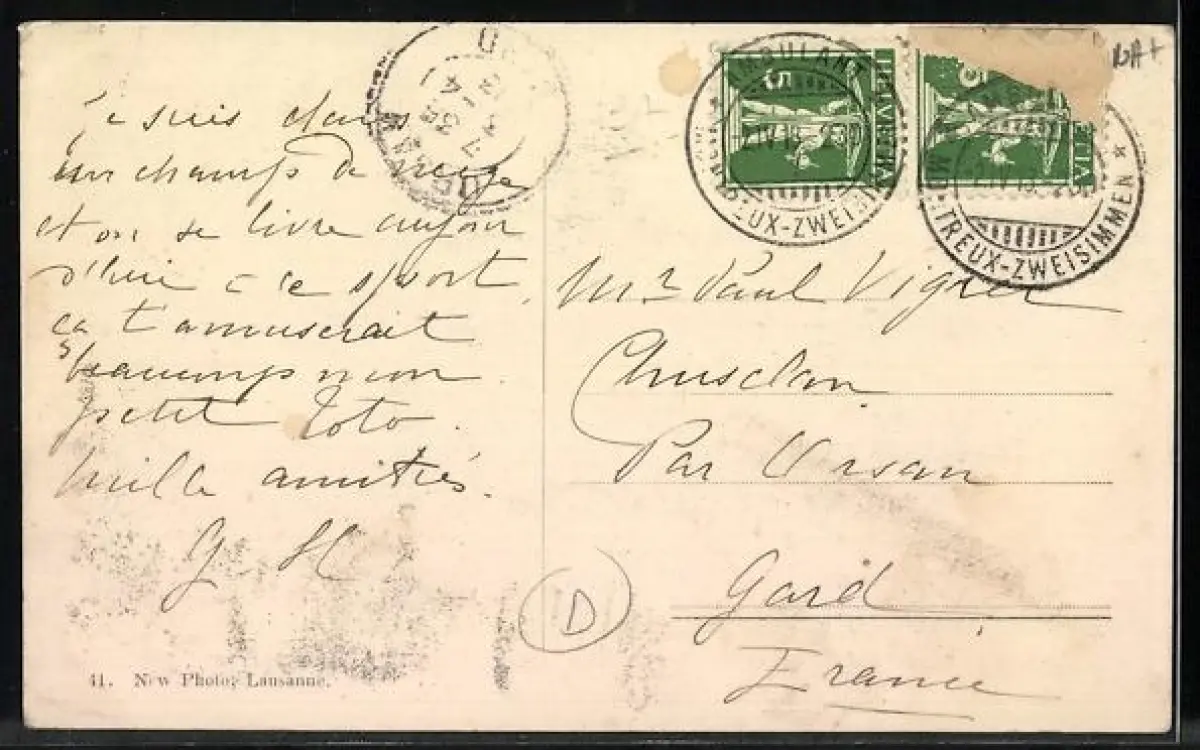 Je suis dans
un champs de neige
et on se livre aujour
d'hui à ce sport
ça t'amuserait
beaucoup mon
petit Toto.
Mille amitiés.
G. H
41. New Photo, Lausanne.
AMBULANT
MONTREUX-ZWEISIMMEN
HELVETIA
5
MONTREUX-ZWEISIMMEN *
HELVETIA
Mr Paul Vigier
Chusclan
Par Orsan
Gard
France
D